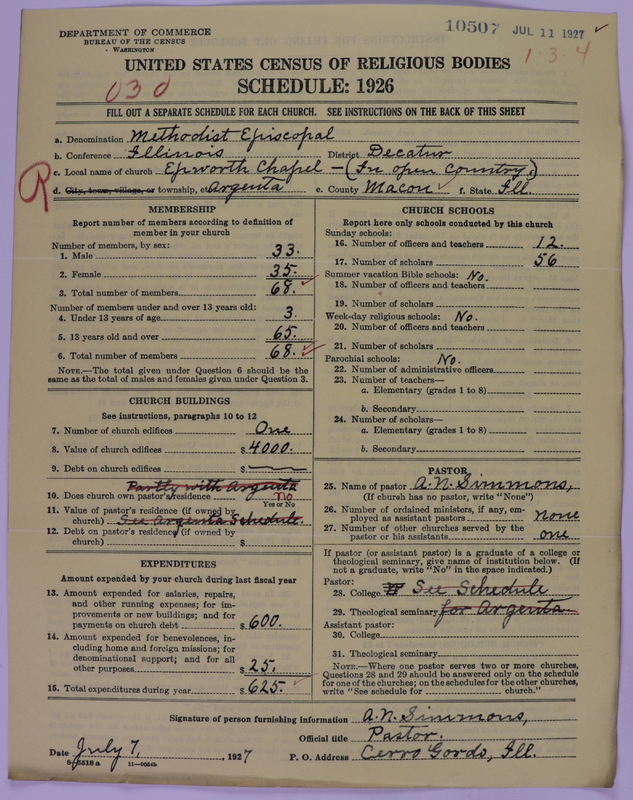 DEPARTMENT OF COMMERCE
BUREAU OF THE CENSUS
WASHINGTON
10507 JUL 11 1927
1-3-4
UNITED STATES CENSUS OF RELIGIOUS BODIES
SCHEDULE: 1926
030
FILL OUT A SEPARATE SCHEDULE FOR EACH CHURCH. SEE INSTRUCTIONS ON THE BACK OF THIS SHEET
a. Denomination Methodist Episcopal
b. Conference Illinois District Decatur
c. Local name of church Epworth Chapel - (In open country.)
R
d. City, town, village, or township, etc. Argenta e. County Macon f. State Ill.
MEMBERSHIP
Report number of members according to definition of
member in your church
Number of members, by sex:
1. Male 33.
2. Female 35.
3. Total number of members 68.
Number of members under and over 13 years old:
4. Under 13 years of age 3.
5. 13 years old and over 65.
6. Total number of members 68.
NOTE.—The total given under Question 6 should be
same as the total of males and females given under Question 3.
CHURCH BUILDINGS
See instructions, paragraphs 10 to 12
7. Number of church edifices One
8. Value of church edifices $ 4000.
9. Debt on church edifices $
Partly with Argenta
10. Does church own pastor's residence No
Yes or No
11. Value of pastor's residence (if owned by
church) See Argenta Schedule.
12. Debt on pastor's residence (if owned by
church) $
EXPENDITURES
Amount expended by your church during last fiscal year
13. Amount expended for salaries, repairs,
and other running expenses; for im-
provements or new buildings; and for
payments on church debt $ 600.
14. Amount expended for benevolences, in-
cluding home and foreign missions; for
denominational support; and for all
other purposes $ 25.
15. Total expenditures during year $ 625.
CHURCH SCHOOLS
Report here only schools conducted by this church
Sunday schools:
16. Number of officers and teachers 12.
17. Number of scholars 56
Summer vacation Bible schools: No.
18. Number of officers and teachers
19. Number of scholars
Week-day religious schools: No.
20. Number of officers and teachers
21. Number of scholars
Parochial schools: No.
22. Number of administrative officers
23. Number of teachers—
a. Elementary (grades 1 to 8)
b. Secondary
24. Number of scholars—
a. Elementary (grades 1 to 8)
b. Secondary
PASTOR
25. Name of pastor A. N. Simmons,
(If church has no pastor, write "None")
26. Number of ordained ministers, if any, em-
ployed as assistant pastors none
27. Number of other churches served by the
pastor or his assistants one
If pastor (or assistant pastor) is a graduate of a college or
theological seminary, give name of institution below. (If
not a graduate, write "No" in the space indicated.)
Pastor:
28. College See Schedule
29. Theological seminary for Argenta
Assistant pastor:
30. College
31. Theological seminary
NOTE.—Where one pastor serves two or more churches,
Questions 28 and 29 should be answered only on the schedule
for one of the churches; on the schedules for the other churches,
write "See schedule for church."
Signature of person furnishing information A. N. Simmons,
Official title Pastor.
Date July 7, 1927 P. O. Address Cerro Gordo, Ill.